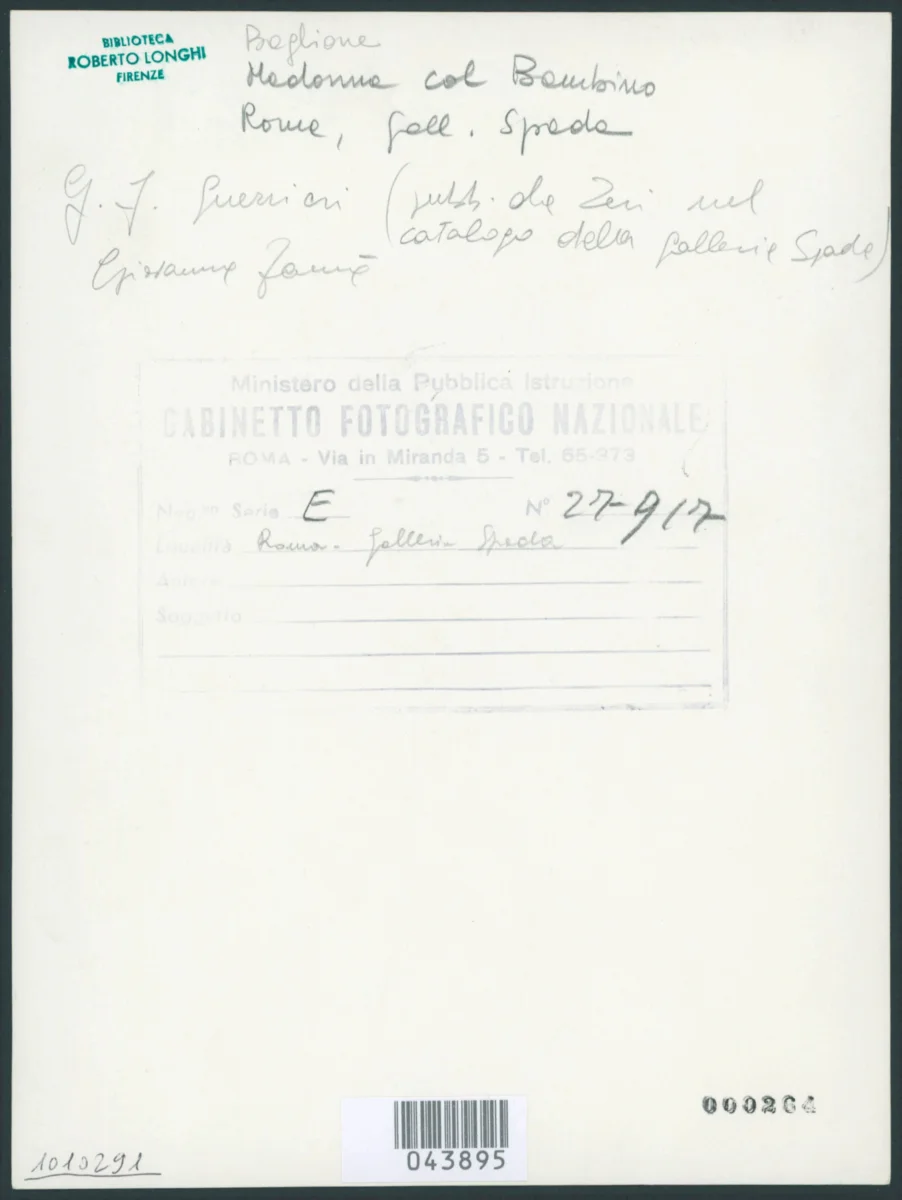 BIBLIOTECA
ROBERTO LONGHI
FIRENZE
Baglione
Madonna col Bambino
Roma, Gall. Spada
G. F. Guerrieri (pubb. da Zeri nel
catalogo della Galleria Spada)
Giovanna
Ministero della Pubblica Istruzione
GABINETTO FOTOGRAFICO NAZIONALE
ROMA - Via in Miranda 5 - Tel. 65-373
Serie E N° 27917
Località Roma - Galleria Spada
Autore
Soggetto
000264
043895
1010291